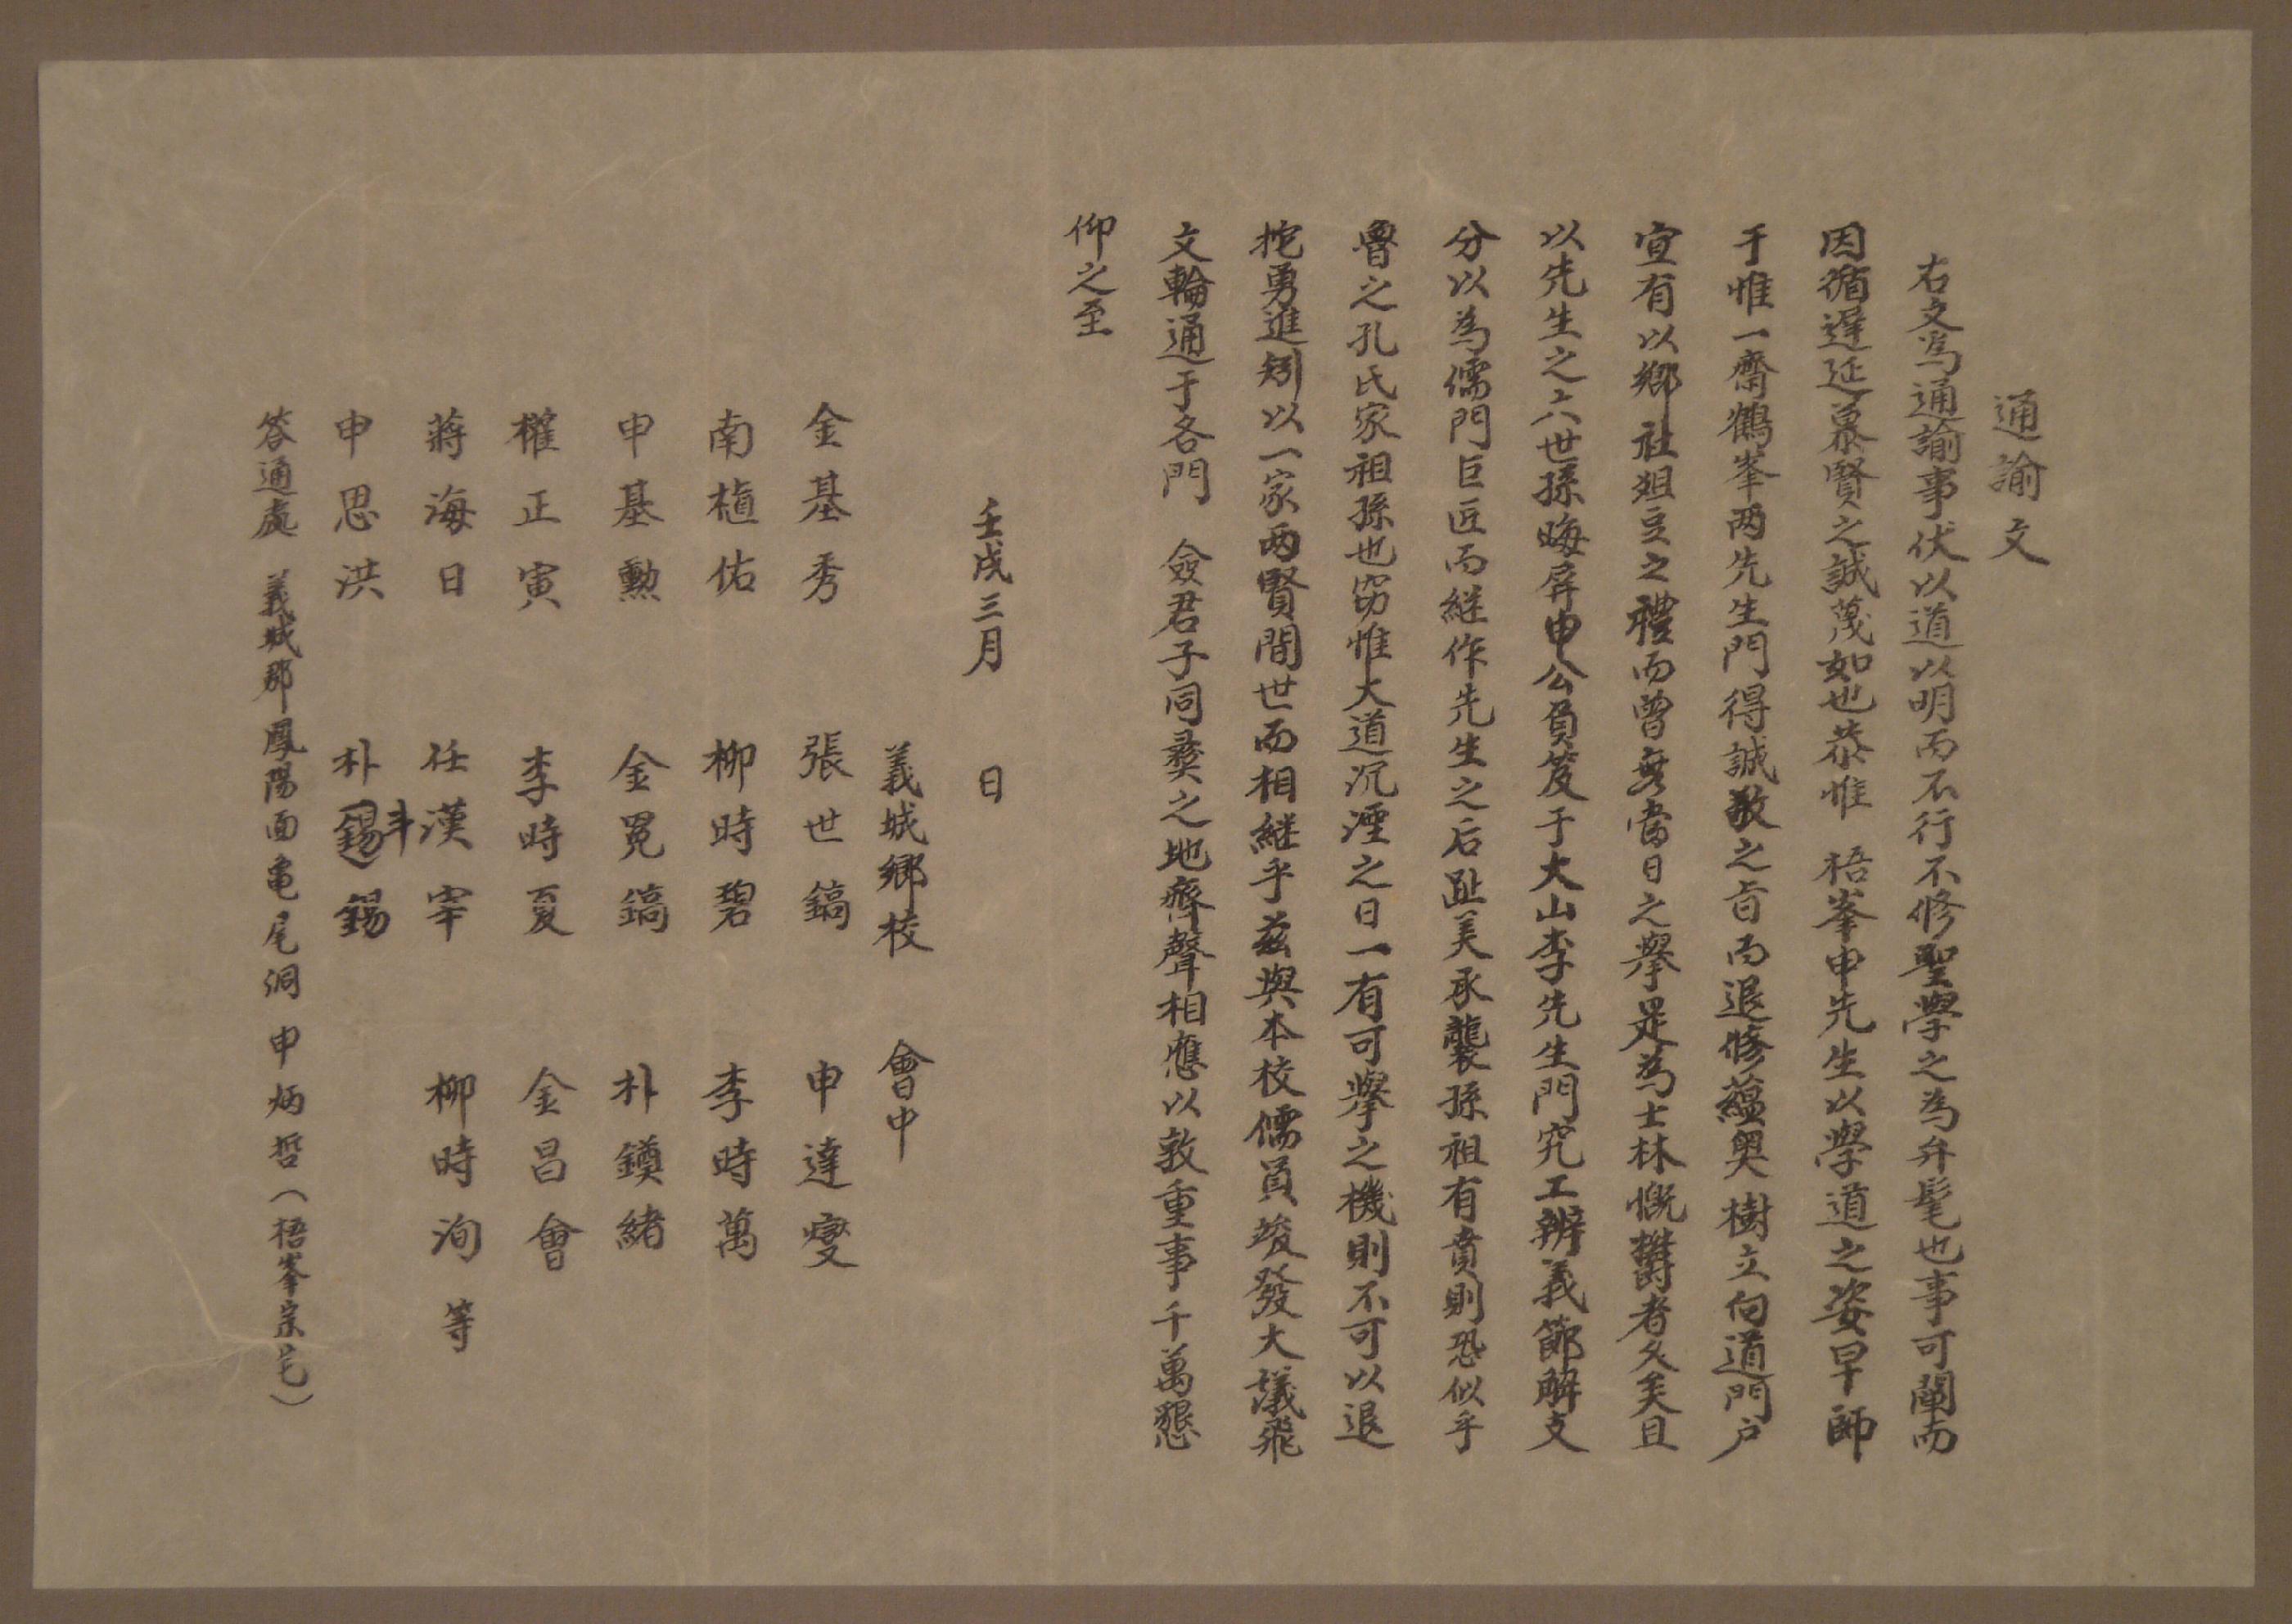 通諭文
右文爲通諭事伏以道以明而不行不修聖學之為弁髦也事可闡而
因循遲延慕賢之誠蔑如也恭惟 梧峯申先生以學道之姿早師
于惟一齋鶴峯两先生門得誠敬之旨而退修蘊奥樹立向道門户
宜有以鄉社俎豆之禮而曾無當日之擧是為士林慨欝者久矣且
以先生之六世孫晦屏申公負笈于大山李先生門究工辨義節解支
分以為儒門巨匠而継作先生之后趾美承襲孫祖有賁則恐似乎
魯之孔氏家祖孫也窃惟大道沉湮之日一有可擧之機則不可以退
抱勇進矧以一家两賢間世而相継乎玆與本校儒員峻發大議飛
文輪通于各門 僉君子同彛之地齊聲相應以敦重事千萬懇
仰之至
壬戌三月 日
義城鄉校 會中
金基秀 張世鎬 申達燮
南植佑 柳時碧 李時萬
申基勲 金冕鎬 朴鑌緒
權正寅 李時夏 金昌會
蔣海日 任漢宰 柳時洵 等
申思洪 朴斗錫
答通處 義城郡鳳陽面龜尾洞 申炳哲（梧峯宗宅）